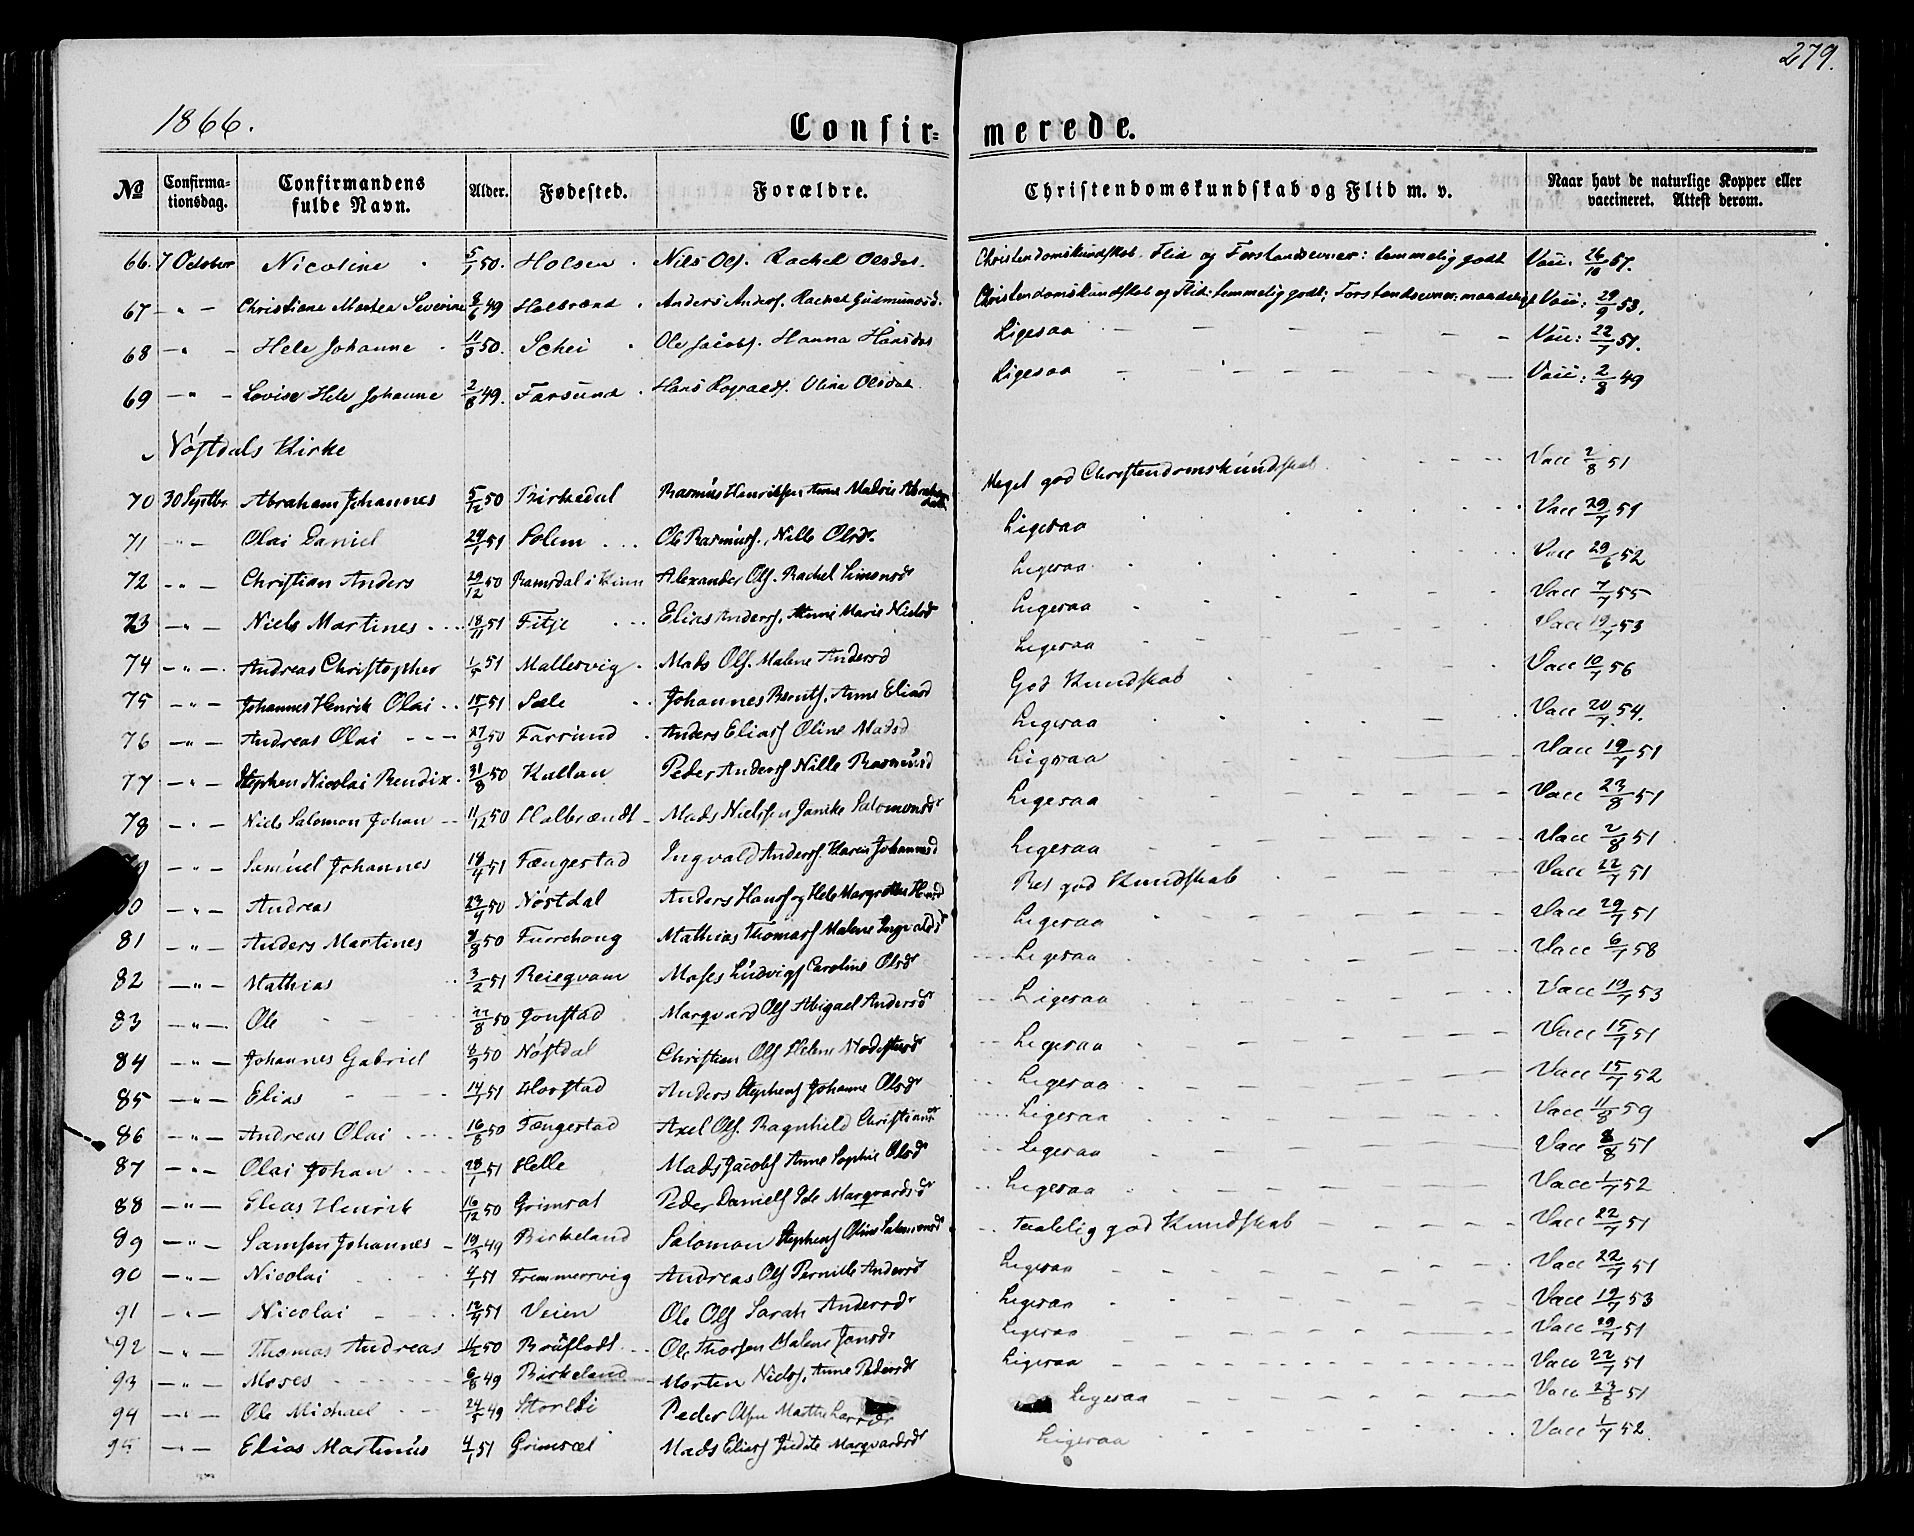 279.
1866.
Confir= merede.
No Confirmationsdag. Confirmandens fulde Navn. Alder. Fødested. Forældre. Christendomskundskab og Flid m. v. Naar havt de naturlige Kopper eller vaccineret. Attest derom.
66. 7 October Nicoline 5/1 50. Holsen Nils Ols. Rachel Olsdat. Christendomskundskab, Flid og Forstandsevner: temmelig godt Vacc: 26/10 57.
67 - " - Christiane Martea Severine 8/6 49 Halbrænd Anders Anders. Rachel Gudmunsd. Christendomskundskab og Flid: temmelig godt; Forstandsevner: maadeligt Vacc: 29/9 53.
68 - " - Hele Johanne 50. Schei Ole Jacobs. Hanna Hansdat Ligesaa Vacc: 22/7 51.
69 - " - Lovise Hele Johanne 2/8 49. Farsund Hans Oline Olsdat Ligesaa Vacc: 2/8 49
Nöstdals Kirke
70 30 Septbr Abraham Johannes 5/12 50 Birkedal Rasmus Henriksen Anne Malvie Meget god Christendomskundskab Vacc 2/8 51
71 - " - Olai Daniel 29/1 51 Solem Ole Rasmus., Nille Olsdr. Ligesaa Vacc 29/7 51
72 - " - Christian Anders 29/12 50 Ramsdal i Kinn Alexander Ols. Rachel Simonsdr Ligesaa Vacc 29/6 52
73 - " - Niels Martines 18/11 51 Fitje Elias Anders. Anne Marie Nielsd Ligesaa Vacc 7/7 55
74 - " - Andreas Christopher 51 Mallesvig Mads Ols. Malene Andersd Ligesaa Vacc 19/7 53
75 - " - Johannes Henrik Olai 51 Sæle Johannes Bents. Anne Eliasd God Kundskab Vacc 10/7 56
76 - " - Andreas Olai 27/9 50 Farsund Anders Elias Oline Madsd Ligesaa Vacc 20/7 54.
77 - " - Stephen Nicolai Bendix 31/8 50 Kallan Peder Anders Nille Rasmusd Ligesaa Vacc 19/7 51
78 - " - Niels Salomon Johan 11/12 50 Halbrændt Mads Nielssen Janike Salomonsdr Ligesaa Vacc 23/8 51
- " - Samuel Johannes 18/4 51 Fængestad Ingvald Anders. Karen Johannesd Ligesaa Vacc 2/8 51
- " - Andreas 23/9 50 Nöstdal Anders Hans og Hele Margrethe Bet god Kundskab Vacc 22/7 51
81 - " - Anders Martines 8/8 50 Furrehoug Mathias Thomas Malene Ingvaldsdr Ligesaa Vacc 29/7 51
82 - " - Mathias 3/2 51 Reiegvam Moses Ludvigs Caroline Olsdr Ligesaa Vacc 6/7 58
83 - " - Ole 22/8 50 Jonstad Marqvard Ols Abigael Andersdr Ligesaa Vacc 19/7 53
84 - " - Johannes Gabriel 50 Nöstdal Christian Ols Helene Modestusdr Ligesaa Vacc 15/7 51
85 - " - Elias 14/1 51 Horstad Anders Stephens Johanne Olsdr Ligesaa Vacc 15/7 52
86 - " - Andreas Olai 16/8 50 Fængestad Axel Ols. Ragnhild Christiansdr Ligesaa Vacc 11/8 59
87 - " - Olai Johan 28/1 51 Helle Mads Jacobs Anne Sophie Olsdr Ligesaa Vacc 8/8 51
88 - " - Elias Henrik 16/12 50 Grimsæt Peder Daniels Ide Marqvardsdr Ligesaa Vacc 1/7 52
89 - " - Samson Johannes 49 Birkeland Salomon Stephens Oline Salomonsdr Taalelig god Kundskab Vacc 22/7 51
90 - " - Nicolai 4/1 51 Fremmersvig Andreas Ols Pernille Andersd Ligesaa Vacc 22/7 51
91 - " - Nicolai 51 Veien Ole Ols Sarah Andersdr Ligesaa Vacc 19/7 53
92 - " - Thomas Andreas 50 Brufledt Ole Thorsen Malene Jonsdr Ligesaa Vacc 29/7 51
93 - " - Moses 6/8 49 Birkeland Morten Niels. Anne Pedersdr Ligesaa Vacc 22/7 51
94 - " - Ole Michael 49 Storlii Peder Olsen Marthe Larsdr Ligesaa Vacc 23/8 51
95 - " - Elias Martinus 4/1 51 Grimsæt Mads Elias Judite Marqvardsdr Ligesaa Vacc 1/7 52